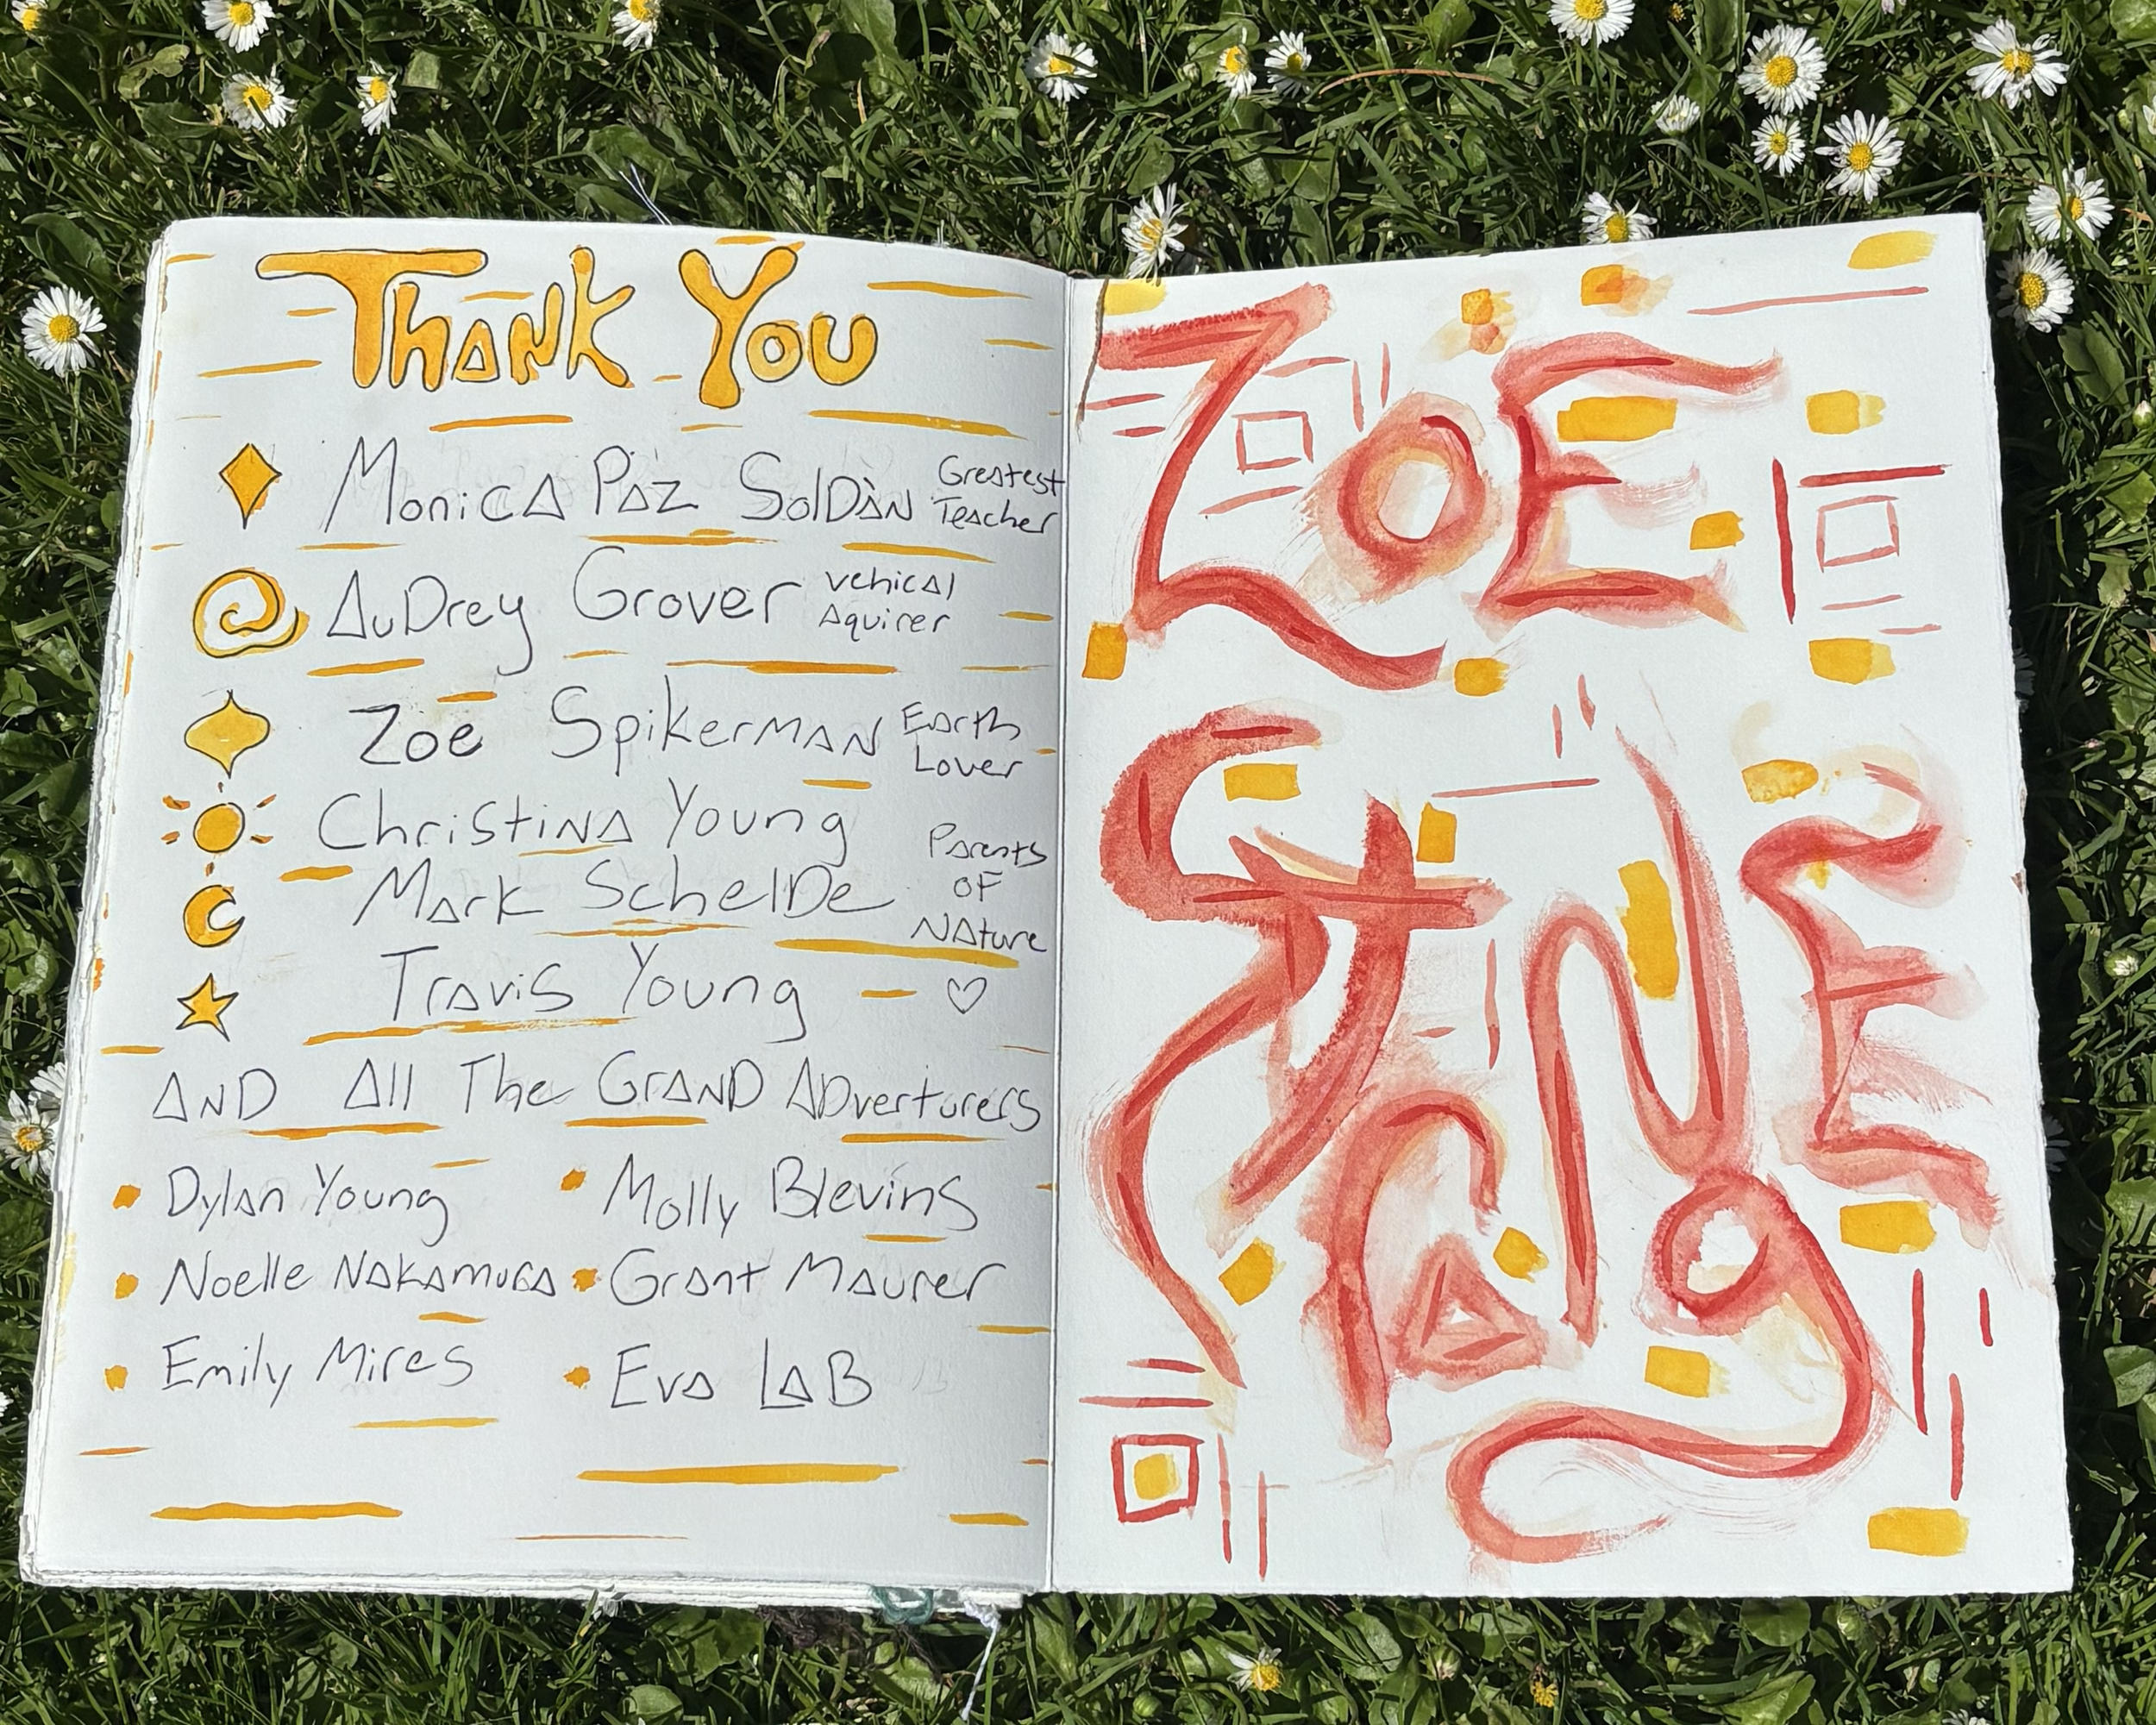 Thank You
Monica Paz Soldàn Greatest Teacher
Audrey Grover vehical Aquirer
Zoe Spikerman Earth Lover
Christina Young
Mark Schelde
Travis Young
Parents
OF
Nature
♡
And All The Grand Adverturers
Dylan Young
Molly Blevins
Noelle Nakamura
Grant Maurer
Emily Mires
Eva Lab
Zoe